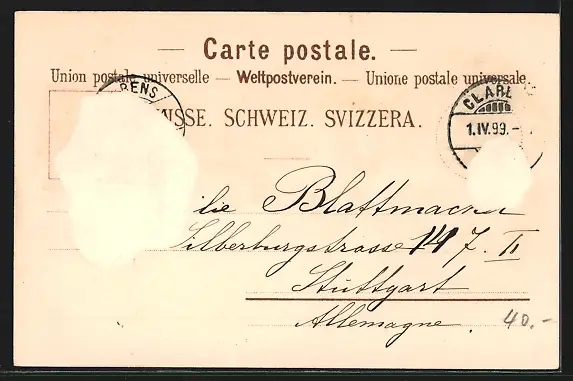 — Carte postale. —
Union postale universelle — Weltpostverein. — Unione postale universale.
SUISSE. SCHWEIZ. SVIZZERA.
RENS
CLAR
1.IV.99.–
lie Blattmacher
Silberburgstrasse 147. II
Stuttgart
Allemagne.
40.-